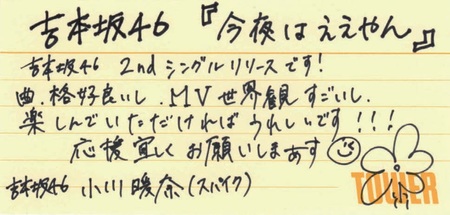 吉本坂46 『今夜はええやん』
吉本坂46 2nd シングルリリースです!
曲、格好良いし、MV世界観すごいし、
楽しんでいただければうれしいです!!!
応援宜しくお願いしまあす
吉本坂46 小川暖奈(スパイク)
TOWER